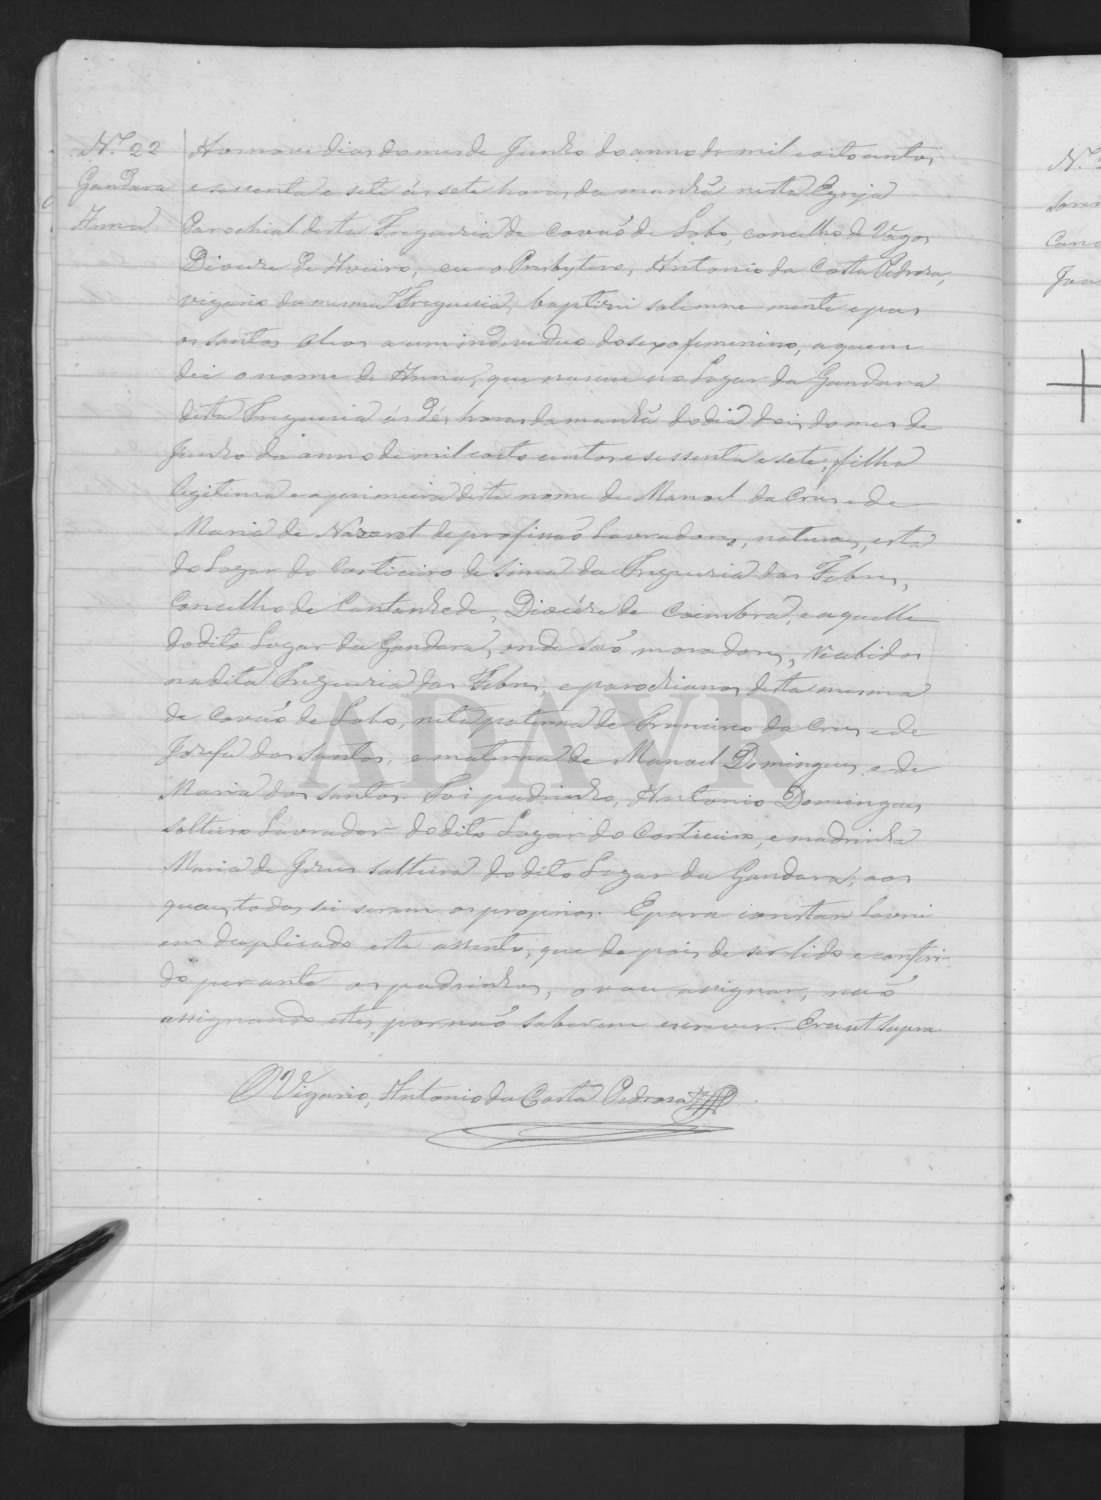 N.º 22
Gandara
Anna
Aos nove dias do mes de Junho do anno de mil e oitocentos
e sessenta e sete ás sete horas da manhã nesta Egreja
Parochial desta Freguezia de Covaõ de Lobo, concelho de Vagos
Dioceze de Aveiro, eu o Presbytero, Antonio da Costa Pedroza,
vigario da mesma Freguezia, baptizei solemne mente e pus
os santos oleos a um individuo do sexo feminino, a quem
dei o nome de Anna, que nasceu no Lugar da Gandara
desta Freguezia ás dés horas da manhã do dia dois do mes de
Junho do anno de mil e oito centos e sessenta e sete, filha
legitima e a primeira deste nome de Manoel da Crus e de
Maria de Nazaret de profissaõ Lavradores, naturaes, esta
do Lugar do Corticeiro de Sima da Freguezia das Febres,
Concelho de Cantanhede, Diocéze de Coimbra, e aquelle
do dito Lugar da Gandara, onde saõ moradores, recebidos
na dita Freguezia das Febres, e parochianos desta mesma
de Covaõ de Lobo, neta paterna de Francisco da Crus e de
Jozefa dos Santos, e maternal de Manoel Domingues, e de
Maria dos Santos. Foi padrinho, Antonio Domingues,
solteiro Lavrador do dito Lugar do Corticeiro, e madrinha
Maria de Jezus solteira do dito Lugar da Gandara, aos
quaes todos sei serem os proprios. E para constar lavrei
em duplicado este assento, que depois de ser lido e conferi-
do perante os padrinhos, o vou assignar, naõ
assignando estes, por naõ saberem escrever. Era ut supra
O Vigario, Antonio da Costa Pedroza
N.º
Cand
ADAVR